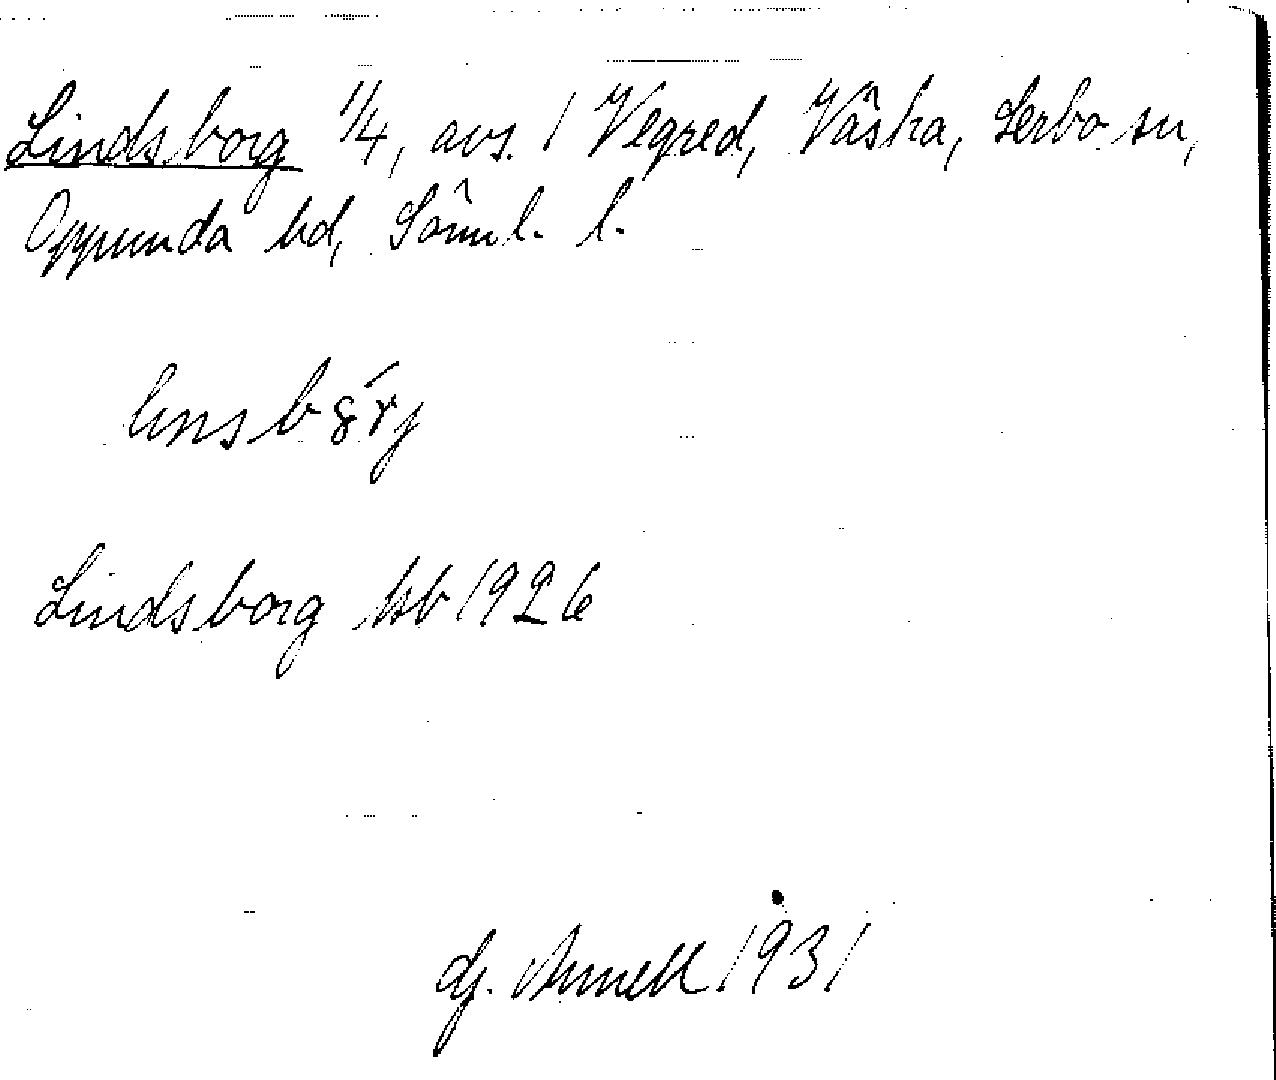 Lindsborg 1/4, avs. 1 Vegred, Våska, Lerbo sn,
Oppunda hd, Söml. l.
Lindsborg kb 1926
Dj. Arnell 1931